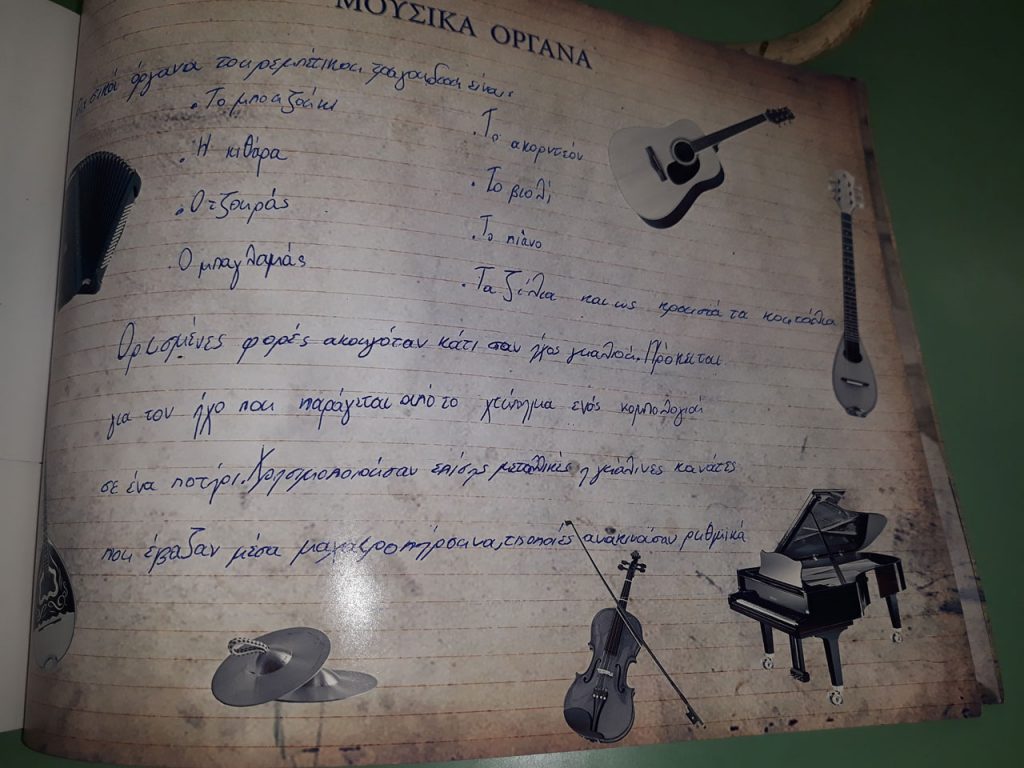 ΜΟΥΣΙΚΑ ΟΡΓΑΝΑ
όργανα του ρεμπέτικου τραγουδιού είναι:
• Το μπουζούκι
• Η κιθάρα
• Ο τζουράς
• Ο μπαγλαμάς
• Το ακορντεόν
• Το βιολί
• Το πιάνο
• Τα ζίλια και ως κρουστά τα κουτάλια
Ορισμένες φορές ακουγόταν κάτι σαν ήχος γυαλιού. Πρόκειται
για τον ήχο που παράγεται από το χτύπημα ενός κομπολογιού
σε ένα ποτήρι. Χρησιμοποιούσαν επίσης μεταλλικές ή γυάλινες κανάτες
που έβαζαν μέσα τις οποίες ανακινούσαν ρυθμικά